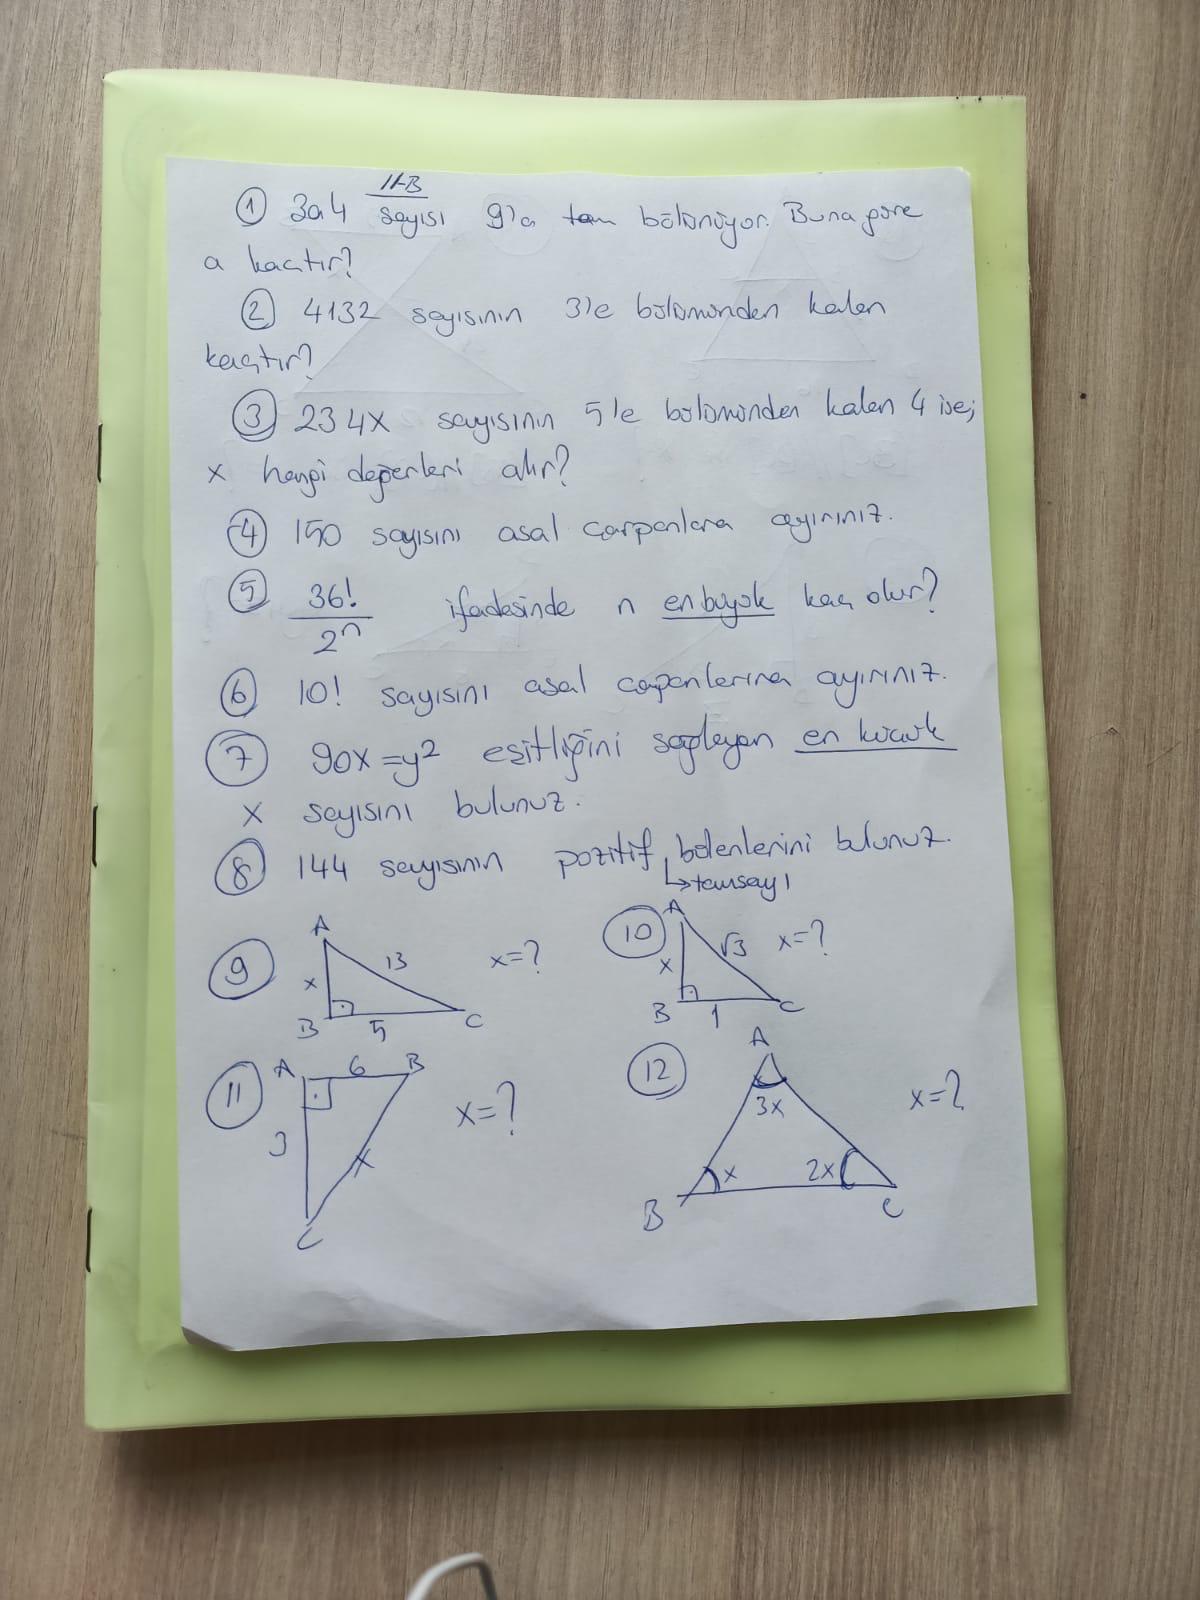 11-B
① 3a4 sayısı 9'a tam bölünüyor. Buna göre
a kaçtır?
② 4132 sayısının 3'e bölümünden kalan
kaçtır?
③ 234x sayısının 5'e bölümünden kalan 4 ise;
x hangi değerleri alır?
④ 150 sayısını asal çarpanlara ayırınız.
⑤ 36!/2ⁿ ifadesinde n en büyük kaç olur?
⑥ 10! sayısını asal çarpanlarına ayırınız.
⑦ 90x=y² eşitliğini sağlayan en küçük
x sayısını bulunuz.
⑧ 144 sayısının pozitif, bölenlerini bulunuz.
↳tamsayı
⑨ A 13 x B 5 C x=?
⑩ A √3 x B 1 C x=?
⑪ A 6 B 3 x C x=?
⑫ A 3x x 2x B C x=?